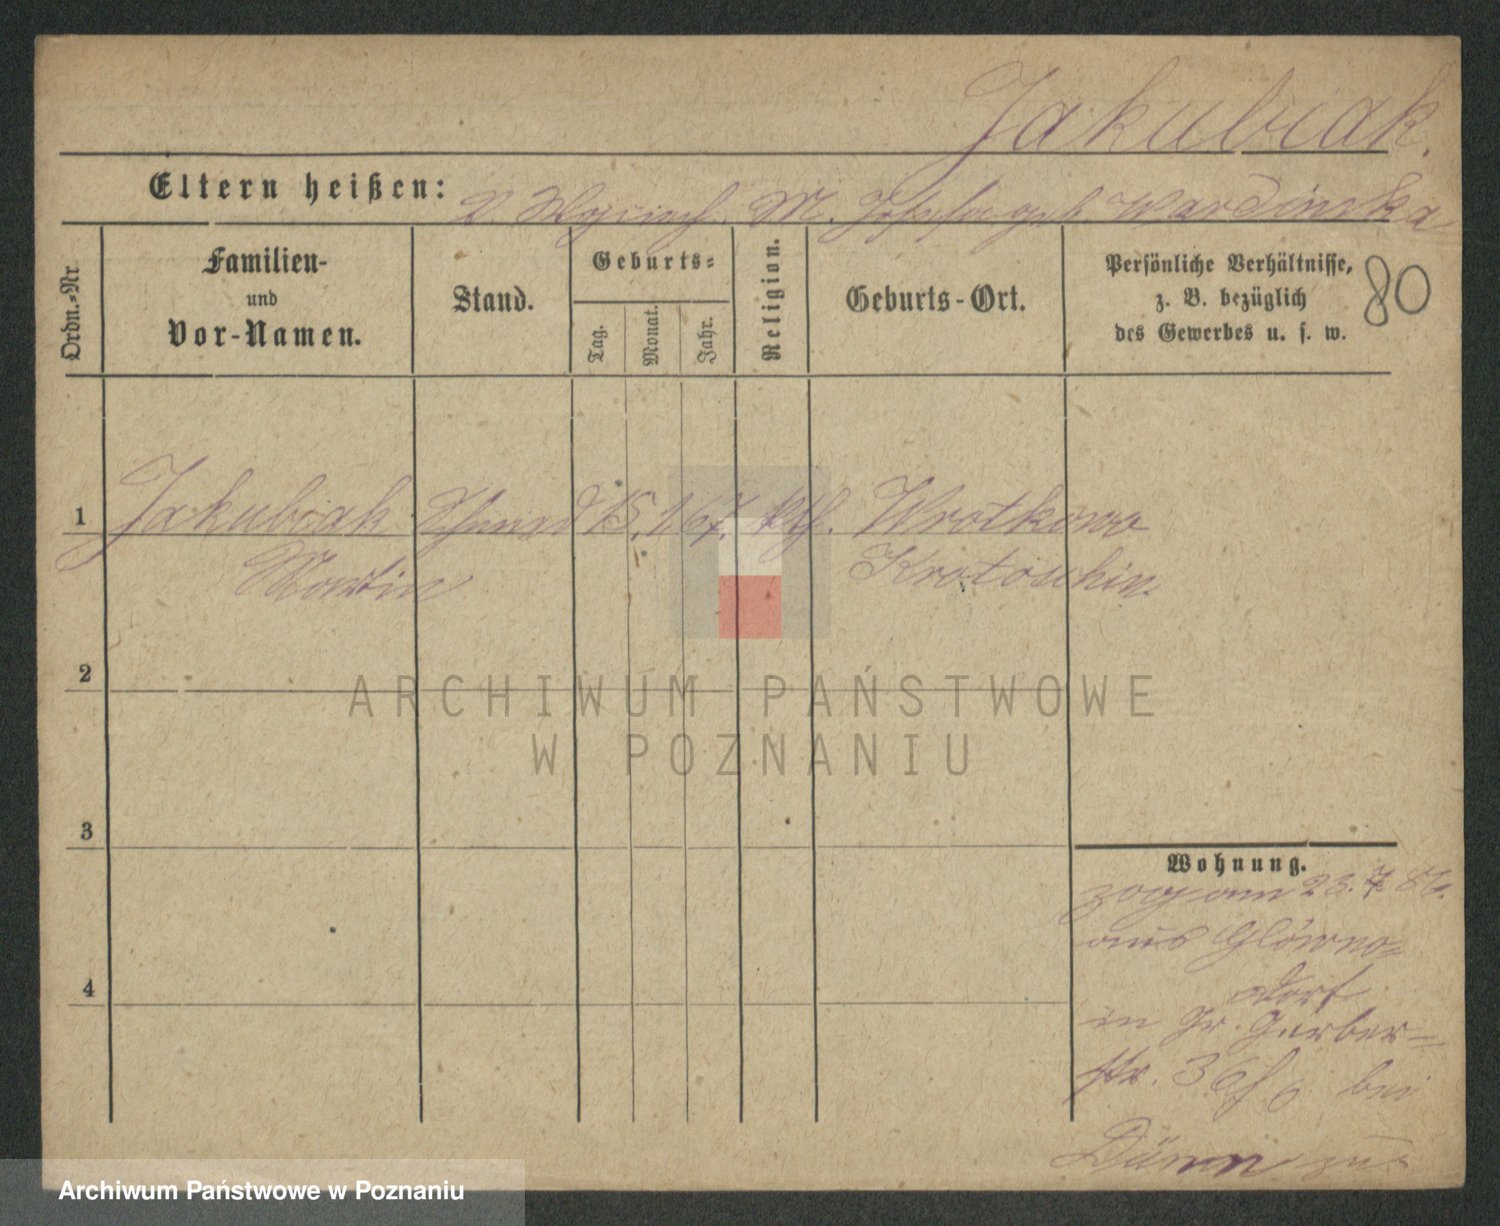 Jakubiak.
Eltern heißen: V. Wojciech. M. Josefa geb. Wardinska
Ordn.-Nr.
Familien-
und
Vor-Namen.
Stand.
Geburts-
Tag.
Monat.
Jahr.
Religion.
Geburts-Ort.
Persönliche Verhältnisse,
z. B. bezüglich
des Gewerbes u. s. w.
80
1 Jakubiak 15. 1. 67. kth. Wrotkowo
Martin Krotoschin.
2
3
4
Wohnung.
zog am 23. 7. 86.
aus Glówno-
dorf
in Gr. Gerber-
str. 36 bei
zu-
ARCHIWUM PAŃSTWOWE
W POZNANIU
Archiwum Państwowe w Poznaniu